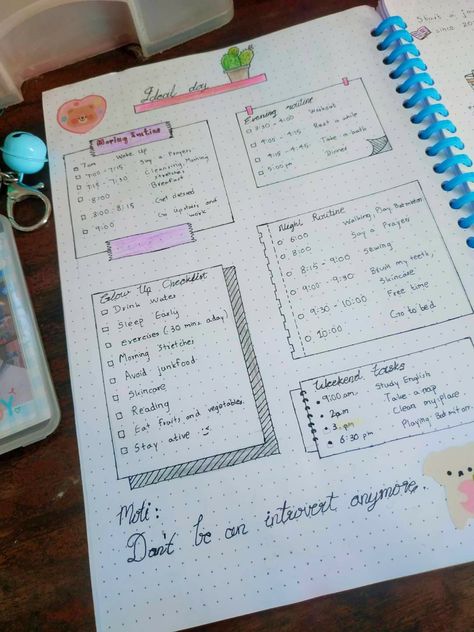 Ideal day
Moring Routine
7am Wake Up
7:00 - 7:15 Say a Prayers
7:15 - 7:30 Cleansing, Moring
stretches
Breakfast
8:00 - 8:15 Get dressed
9:00 Go upstairs and
work
Evening routine
3:30 - 4:00 Workout
4:00 - 4:15 Rest a while
4:15 - 4:45 Take a bath
5:00 pm Dinner
Glow Up Checklist
Drink Water
Sleep Early
exercises (30 mins a day)
Morning Stretches
Avoid junkfood
Skincare
Reading
Eat fruits and vegetables
Stay ative
Night Routine
6:00 Walking, Play Batminton
8:00 Say a Prayers
8:15 - 9:00 Sewing
9:00 - 9:30 Brush my teeth,
Skincare
9:30 - 10:00 Free time
10:00 Go to bed
Weekend Tasks
9:00 am. Study English
2pm Take a nap
3 pm Clean my place
6:30 pm Playing Batminton
Moti:
Don't be an introvert anymore.
Start a
since 20